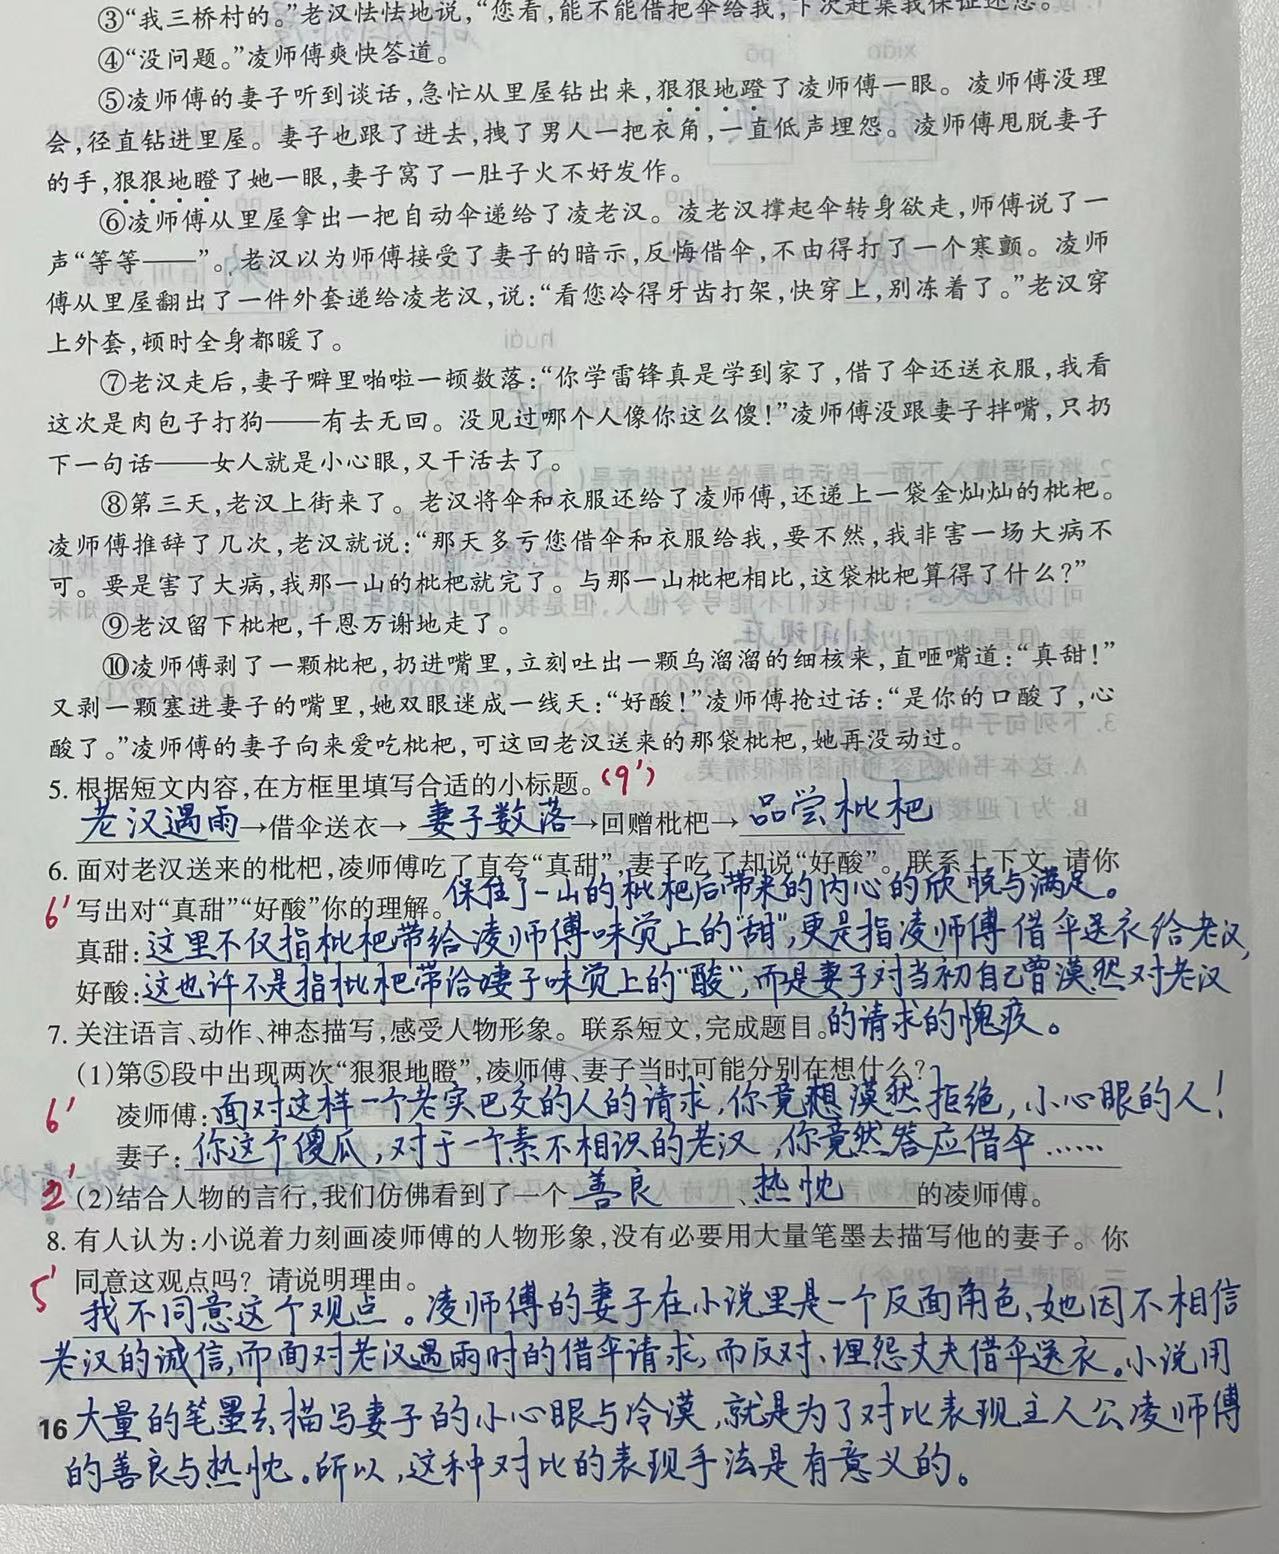 ③“我三桥村的。”老汉怯怯地说,“您看,能不能借把伞给我,下次赶集我保证还您。”
④“没问题。”凌师傅爽快答道。
⑤凌师傅的妻子听到谈话,急忙从里屋钻出来,狠狠地蹬了凌师傅一眼。凌师傅没理
会,径直钻进里屋。妻子也跟了进去,拽了男人一把衣角,一直低声埋怨。凌师傅甩脱妻子
的手,狠狠地瞪了她一眼,妻子窝了一肚子火不好发作。
⑥凌师傅从里屋拿出一把自动伞递给了凌老汉。凌老汉撑起伞转身欲走,师傅说了一
声“等等——”。老汉以为师傅接受了妻子的暗示,反悔借伞,不由得打了一个寒颤。凌师
傅从里屋翻出了一件外套递给凌老汉,说:“看您冷得牙齿打架,快穿上,别冻着了。”老汉穿
上外套,顿时全身都暖了。
⑦老汉走后,妻子噼里啪啦一顿数落:“你学雷锋真是学到家了,借了伞还送衣服,我看
这次是肉包子打狗——有去无回。没见过哪个人像你这么傻!”凌师傅没跟妻子拌嘴,只扔
下一句话——女人就是小心眼,又干活去了。
⑧第三天,老汉上街来了。老汉将伞和衣服还给了凌师傅,还递上一袋金灿灿的枇杷。
凌师傅推辞了几次,老汉就说:“那天多亏您借伞和衣服给我,要不然,我非害一场大病不
可。要是害了大病,我那一山的枇杷就完了。与那一山枇杷相比,这袋枇杷算得了什么?”
⑨老汉留下枇杷,千恩万谢地走了。
⑩凌师傅剥了一颗枇杷,扔进嘴里,立刻吐出一颗乌溜溜的细核来,直咂嘴道:“真甜!”
又剥一颗塞进妻子的嘴里,她双眼迷成一线天:“好酸!”凌师傅抢过话:“是你的口酸了,心
酸了。”凌师傅的妻子向来爱吃枇杷,可这回老汉送来的那袋枇杷,她再没动过。
5. 根据短文内容,在方框里填写合适的小标题。(9')
老汉遇雨→借伞送衣→妻子数落→回赠枇杷→品尝枇杷
6. 面对老汉送来的枇杷,凌师傅吃了直夸“真甜”,妻子吃了却说“好酸”。联系上下文,请你
6' 写出对“真甜”“好酸”你的理解。保住了一山的枇杷后带来的内心的欣悦与满足。
真甜:这里不仅指枇杷带给凌师傅味觉上的“甜”,更是指凌师傅借伞送衣给老汉,
好酸:这也许不是指枇杷带给妻子味觉上的“酸”,而是妻子对当初自己曾漠然对老汉
7. 关注语言、动作、神态描写,感受人物形象。联系短文,完成题目。的请求的愧疚。
(1)第⑤段中出现两次“狠狠地瞪”,凌师傅、妻子当时可能分别在想什么?
6' 凌师傅:面对这样一个老实巴交的人的请求,你竟想漠然拒绝,小心眼的人!
妻子:你这个傻瓜,对于一个素不相识的老汉,你竟然答应借伞……
2' (2)结合人物的言行,我们仿佛看到了一个善良、热忱的凌师傅。
8. 有人认为:小说着力刻画凌师傅的人物形象,没有必要用大量笔墨去描写他的妻子。你
5' 同意这观点吗?请说明理由。
我不同意这个观点。凌师傅的妻子在小说里是一个反面角色,她因不相信
老汉的诚信,而面对老汉遇雨时的借伞请求,而反对、埋怨丈夫借伞送衣。小说用
16 大量的笔墨去描写妻子的小心眼与冷漠,就是为了对比表现主人公凌师傅
的善良与热忱。所以,这种对比的表现手法是有意义的。